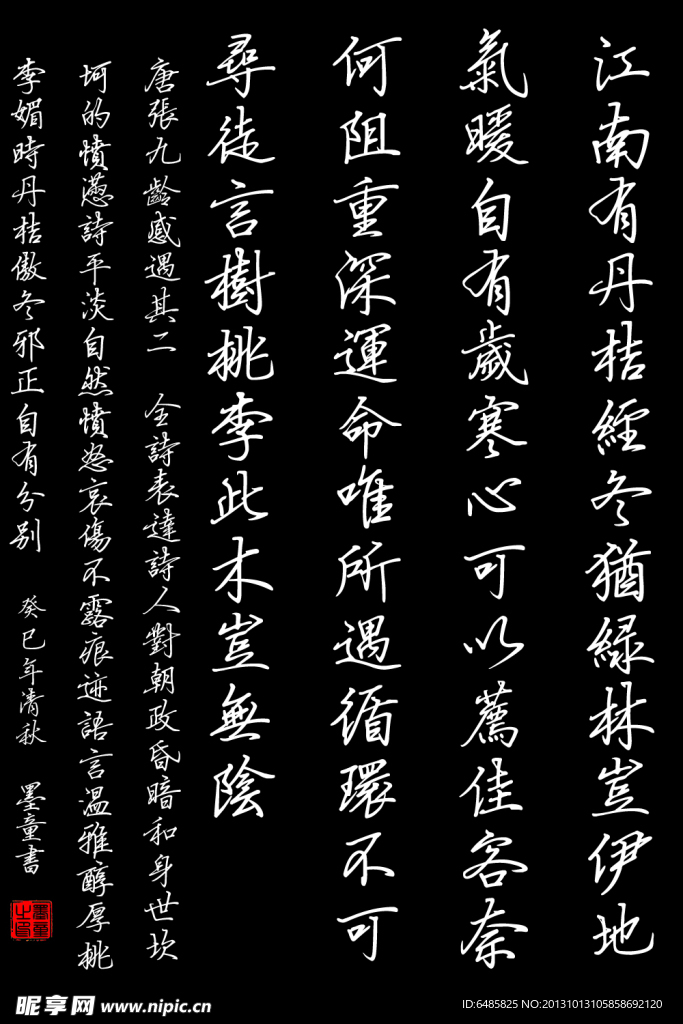 江南有丹桔經冬猶緑林豈伊地
氣暖自有歲寒心可以薦佳客奈
何阻重深運命唯所遇循環不可
尋徒言樹桃李此木豈無陰
唐張九齡感遇其二 全詩表達詩人對朝政昏暗和身世坎
坷的憤懣詩平淡自然憤怒哀傷不露痕迹語言溫雅醇厚桃
李媚時丹桔傲冬邪正自有分别 癸巳年清秋 墨童書
昵享网 www.nipic.cn
ID:6485825 NO:20131013105858692120